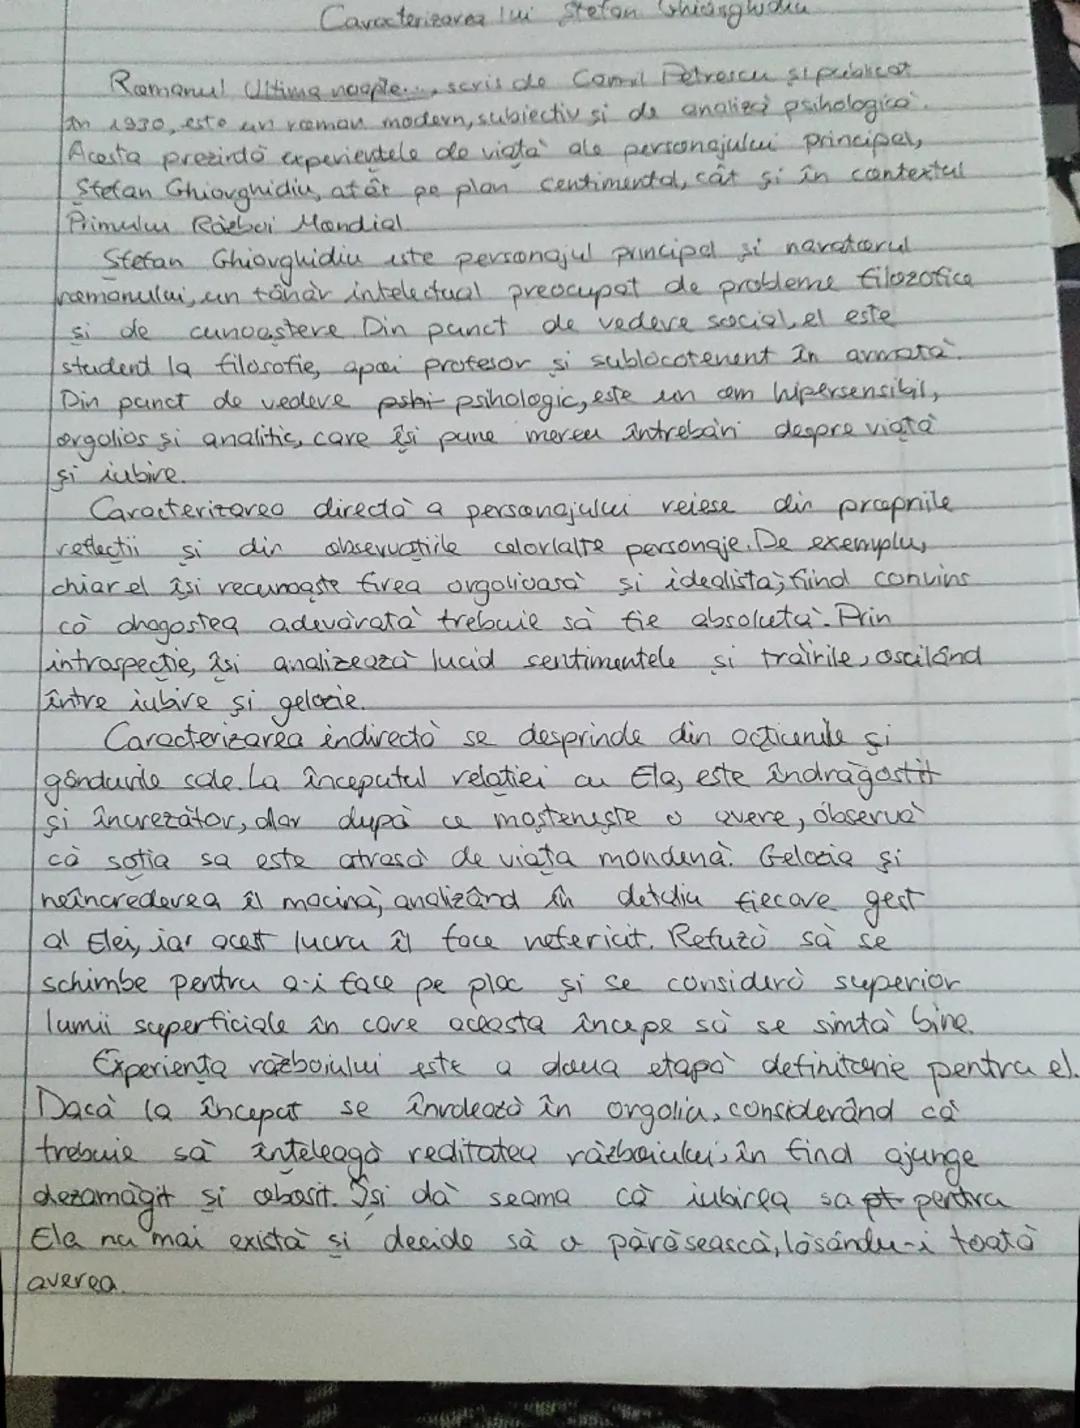 Caracterizarea lui Stefan Ghiorghidiu
Romanul Ultima noapte..., scris de Camil Petrescu și publicat
în 1930, este un roman modern, subiectiv și de analiză psihologică.
Acesta prezintă experiențele de viață ale personajului principal,
Ștefan Ghiorghidiu, atât pe plan sentimental, cât și în contextul
Primului Război Mondial
Ștefan Ghiorghidiu este personajul principal și naratorul
romanului, un tânăr intelectual preocupat de probleme filozofice
și de cunoaștere. Din punct de vedere social, el este
student la filosofie, apoi profesor și sublocotenent în armată.
Din punct de vedere pshi psihologic, este un om hipersensibil,
orgolios și analitic, care își pune mereu întrebări despre viață
și iubire.
Caracterizarea directă a personajului reiese din propriile
reflecții și din observațiile celorlalte personaje. De exemplu,
chiar el își recunoaște firea orgolioasă și idealistă, fiind convins
că dragostea adevărată trebuie să fie absolută. Prin
introspecție, își analizează lucid sentimentele și trăirile, oscilând
între iubire și gelozie.
Caracterizarea indirectă se desprinde din acțiunile și
gândurile sale. La începutul relației cu Ela, este îndrăgostit
și încrezător, dar după ce moștenește o avere, observă
că soția sa este atrasă de viața mondenă. Gelozia și
neîncrederea îl macină, analizând în detaliu fiecare gest
al Elei, iar acest lucru îl face nefericit. Refuză să se
schimbe pentru a-i face pe plac și se consideră superior
lumii superficiale în care aceasta începe să se simtă bine.
Experiența războiului este a doua etapă definitorie pentru el.
Dacă la început se înrolează în orgoliu, considerând că
trebuie să înțeleagă realitatea războiului, în final ajunge
dezamăgit și obosit. Își dă seama că iubirea sa pt pentru
Ela nu mai există și decide să o părăsească, lăsându-i toată
averea.